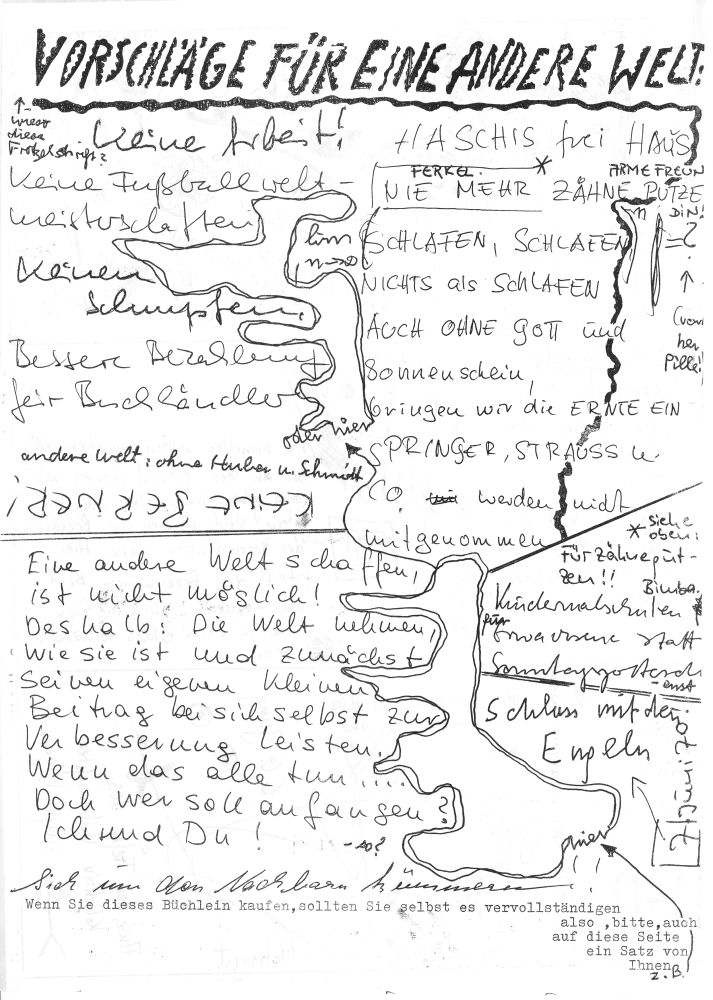 VORSCHLÄGE FÜR EINE ANDERE WELT:
wieso
diese
Keine Arbeit!
Keine Fußballwelt-
meisterschaften
Keinen
Schnupfen.
Bessere Bezahlung
für Buchhändler
oder hier
andere Welt: ohne Huber u. Schmidt
KEINE BERNER!
HASCHIS frei HAUS
FERKEL. *
ARME FREUN
DIN!
NIE MEHR ZÄHNE PUTZE
n
SCHLAFEN, SCHLAFEN
= ?
NICHTS als SCHLAFEN
(von
her
Pille!
AUCH OHNE GOTT und
Sonnenschein,
bringen wir die ERNTE EIN
SPRINGER, STRAUSS u.
CO. werden nicht
mitgenommen
* siehe
oben:
Für Zähneput-
zen!!
Bimba.
Kindermalschulen
für
Erwachsene statt
Sonntagsgottesdi
-enst
Schluss mit den
Engeln
7/Juni 70
Eine andere Welt schaffen,
ist nicht möglich!
Deshalb: Die Welt nehmen,
wie sie ist und zunächst
seinen eigenen kleinen
Beitrag bei sich selbst zur
Verbesserung leisten.
Wenn das alle tun....
Doch wer soll anfangen?
Ich und Du!
- so?
hier
!!
Sich um den Nachbarn kümmern
Wenn Sie dieses Büchlein kaufen,sollten Sie selbst es vervollständigen
also ,bitte,auch
auf diese Seite
ein Satz von
Ihnen
z.B.